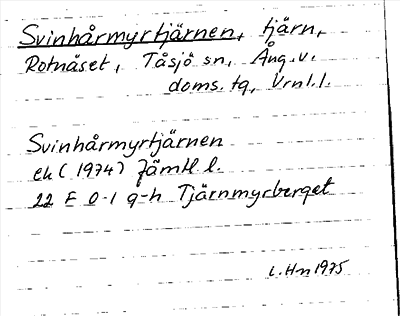 Svinhårmyrtjärnen, tjärn,
Rotnäset, Tåsjö sn, Ång. v.
doms. tg, Vrnl. l.
Svinhårmyrtjärnen
ek (1974) Jämtl l.
22 F 0-1 g-h Tjärnmyrberget
L. Hn 1975